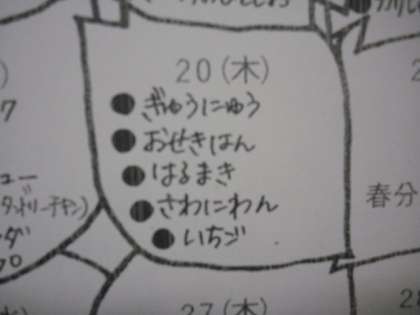 20(木)
●ぎゅうにゅう
●おせきはん
●はるまき
●さわにわん
●いちご
7
ュー
タンドリーチキン)
ダ
プ
春分
27(木)